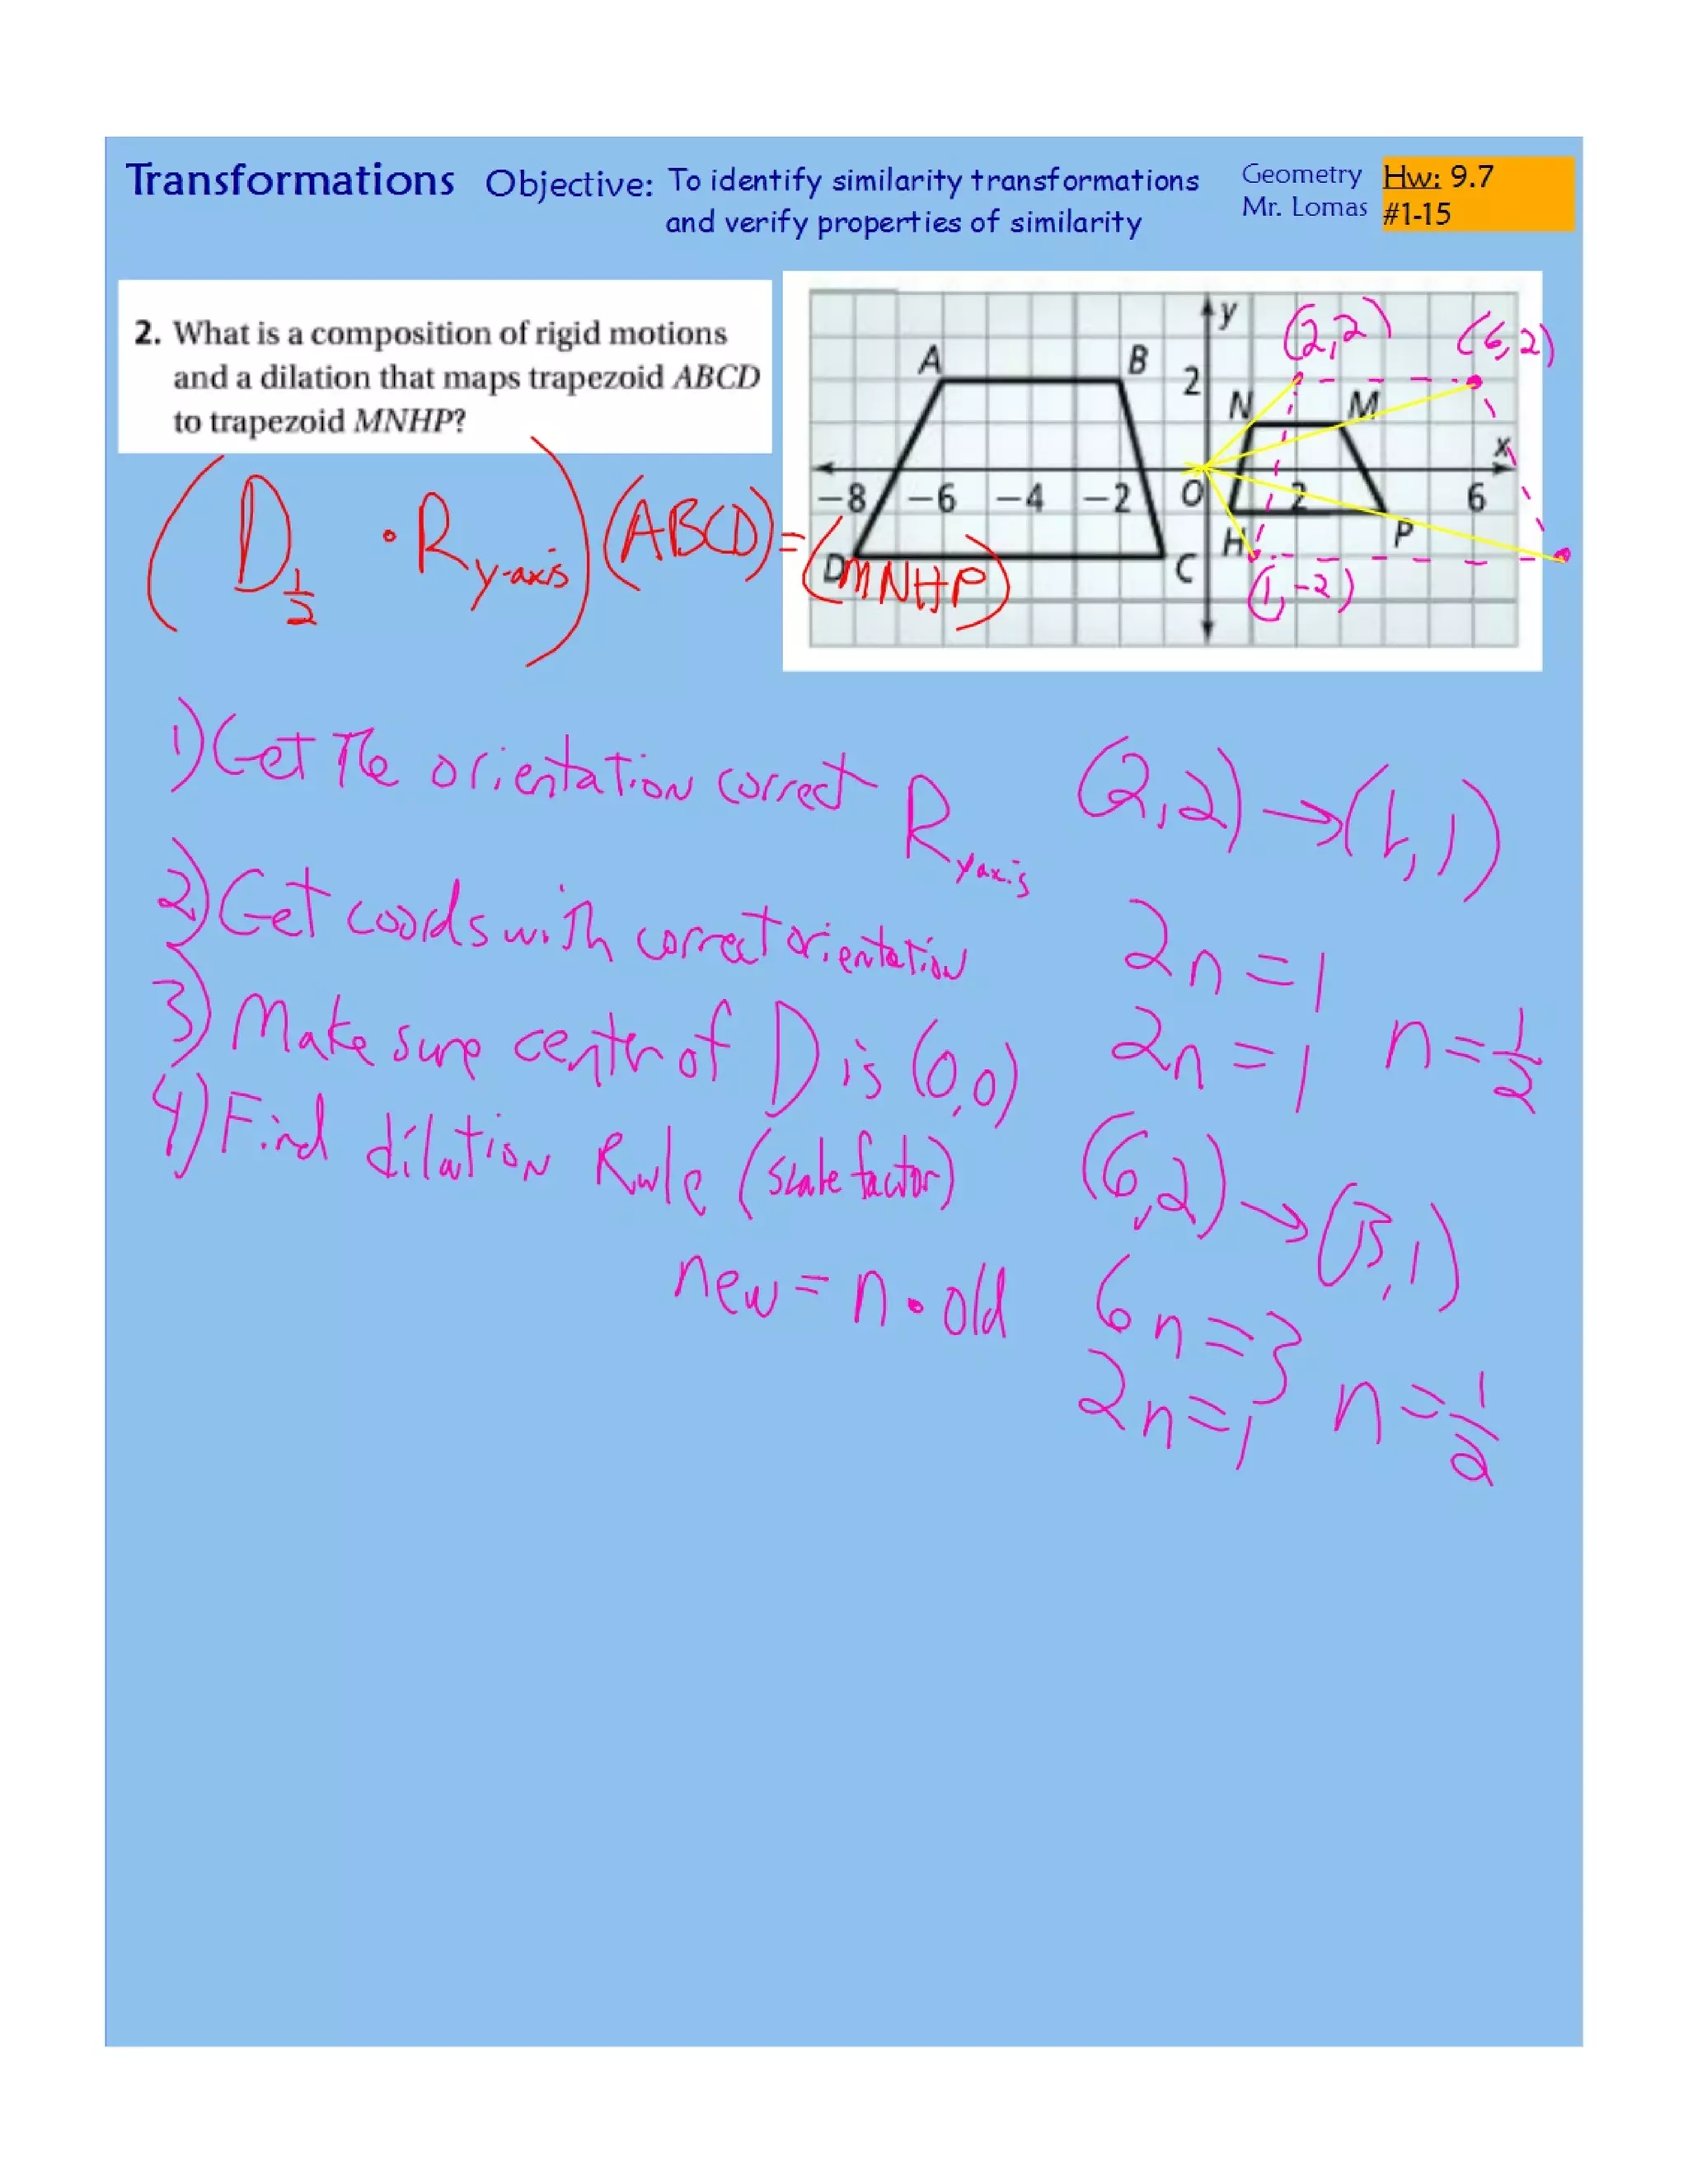 Transformations Objective: To identify similarity transformations and verify properties of similarity
Geometry
Mr. Lomas
Hw: 9.7
#1-15
2. What is a composition of rigid motions
and a dilation that maps trapezoid ABCD
to trapezoid MNHP?
A B 2 y N M x
-8 -6 -4 -2 O 2 6
D C H P
(2,2) (6,2)
(1,-2)
(D 1/2 • R y-axis)(ABCD)=(MNHP)
1) Get the orientation correct R y axis
2) Get coords with correct orientation
3) Make sure center of D is (0,0)
4) Find dilation Rule (scale factor)
new = n • old
(2,2)→(1,1)
2n=1
2n=1 n=1/2
(6,2)→(3,1)
6n=3
2n=1 n=1/2